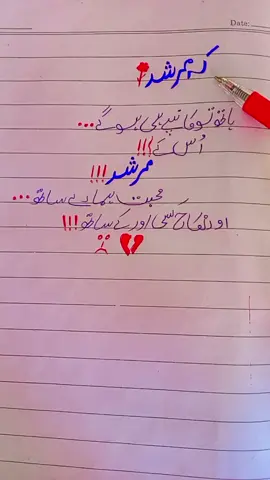 Date:
کہ مرشد
ہاتھ تو کانپے ہی ہوں گے...
اُس کے!!!
مرشد!!!
محبت ہمارے ساتھ...
اور نکاح کسی اور کے ساتھ!!!